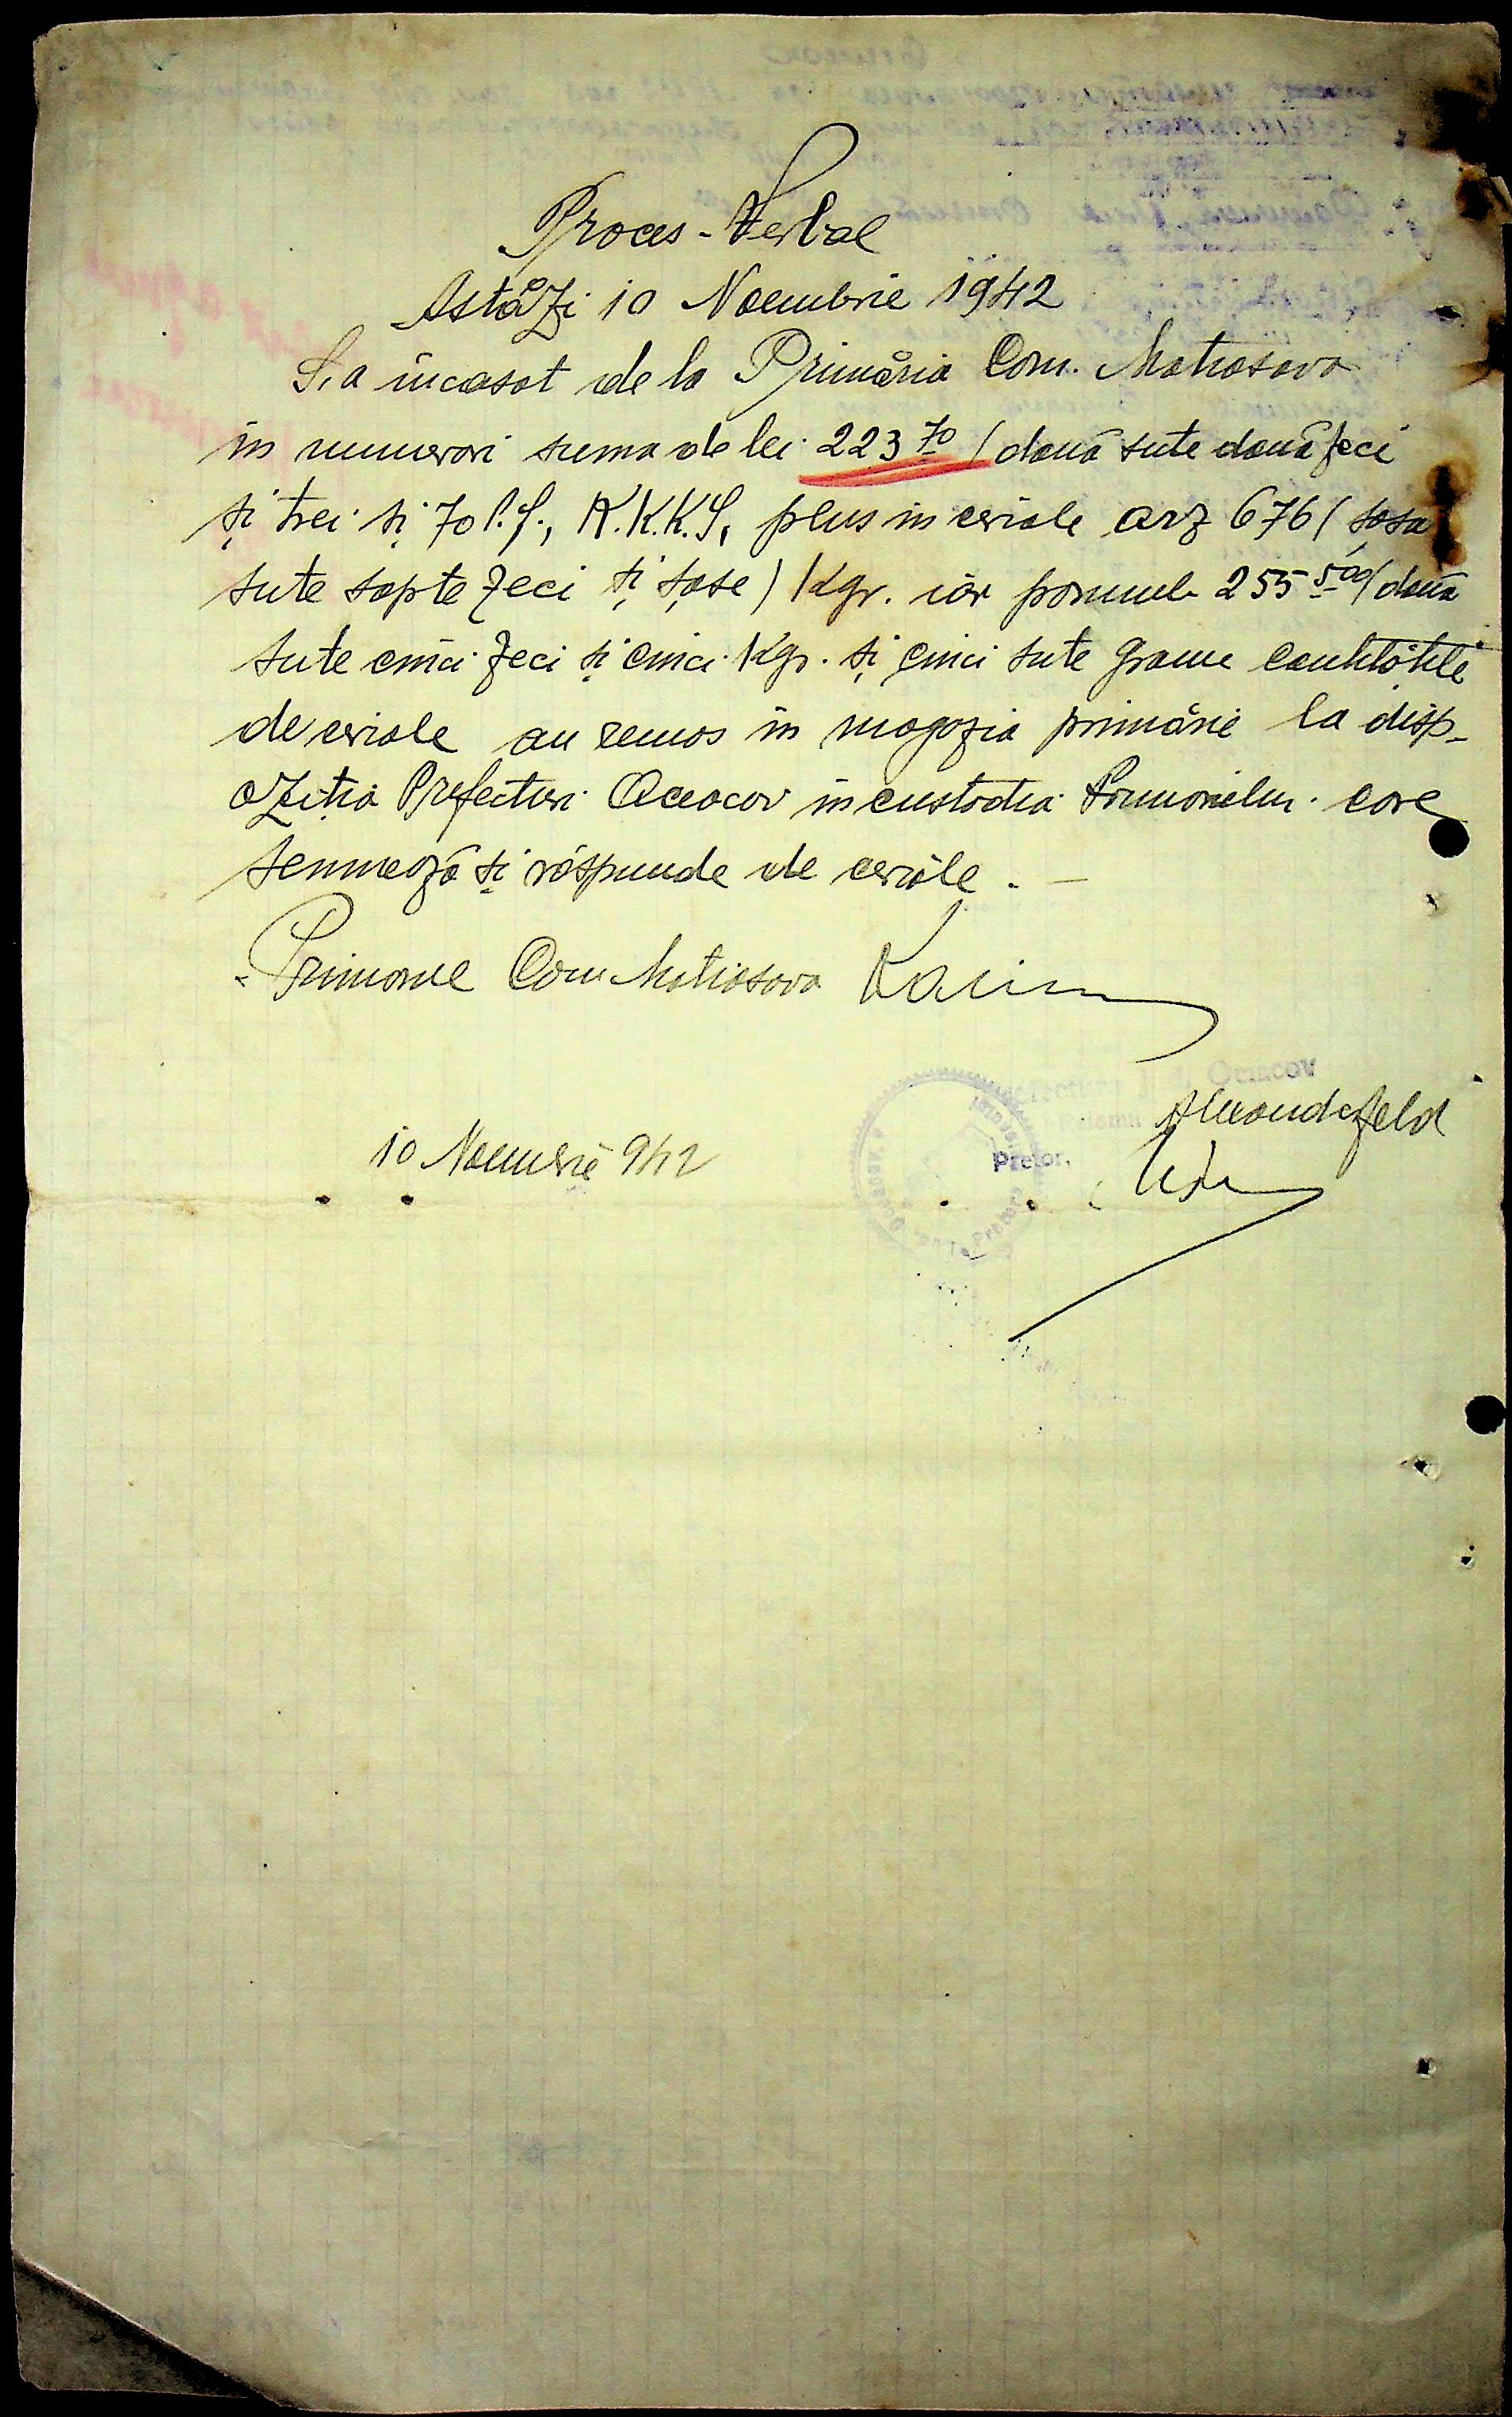 Proces-Verbal
Astăzi 10 Noembrie 1942
S,a încasat de la Primăria Com. Matiasova
în numerari suma de lei 223 70 (două sute două zeci
și trei și 70 p.f., R.K.K.S, plus in ceriale arz 676 ( șasa
sute sapte zeci și șase ) Kgr. iar porumb 255 500 ( două
sute cinci zeci și cinci Kgr. și cinci sute grame cantitățile
de ceriale au remas în magazia primărie la disp-
oziția Prefecturi Oceacov in custodia Primarielui care
semnează și răspunde de ceriale . —
Primarul Com Matiasova
Prefectura Jud. Oceacov
Alexanderfeld
10 Noembrie 942
Pretor,